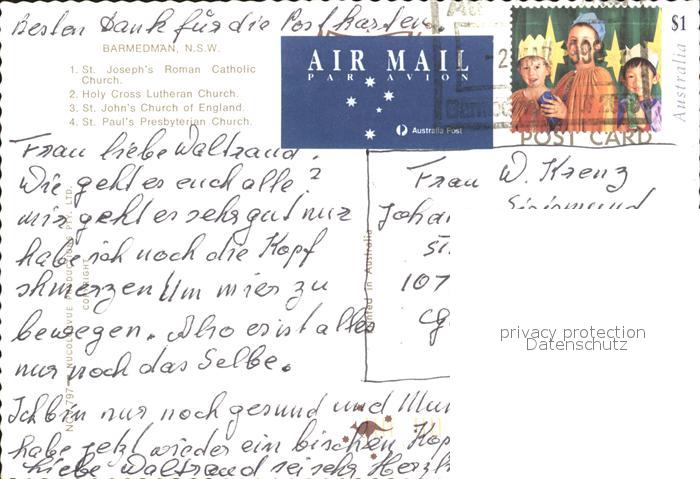 Besten Dank für die Postkarten.
BARMEDMAN, N.S.W.
1. St. Joseph's Roman Catholic
Church.
2. Holy Cross Lutheran Church.
3. St. John's Church of England.
4. St. Paul's Presbyterian Church.
AIR MAIL
PAR AVION
Australia Post
$1
Australia
POST CARD
Frau liebe Waltrand.
Wie geht es euch alle?
mir geht es sehr gut nur
habe ich noch die Kopf
shmerzen Um mier zu
bewegen. Also es ist alles
nur noch das Selbe.
Ich bin nur noch gesund und
habe jetzt wieder ein bischen Kop
liebe Waltrand sei sehr Herzl
Frau W. Krenz
Johan
St.
107
Printed in Australia
NUCOLORVUE PRODUCTIONS PTY. LTD.
COPYRIGHT
privacy protection
Datenschutz